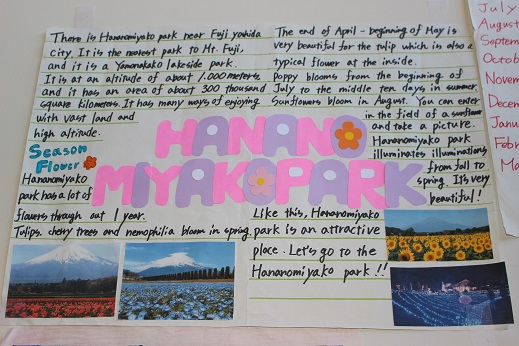 There is Hananomiyako park near Fuji yoshida
City. It is the nearest park to Mt. Fuji,
and it is a Yamanakako lakeside park.
It is at an altitude of about 1,000 meters,
and it has an area of about 300 thousand
square kilometers. It has many ways of enjoying
with vast land and
high altitude.
Season
Flower
Hananomiyako
park has a lot of
flowers through out 1 year.
Tulips, cherry trees and nemophilia bloom in spring.
HANANO
MIYAKOPARK
The end of April - beginning of May is
very beautiful for the tulip which is also a
typical flower at the inside.
Poppy blooms from the beginning of
July to the middle ten days in summer.
Sunflowers bloom in August. You can enter
in the field of a sunflower
and take a picture.
Hananomiyako park
illuminates illuminations
from fall to
spring. It's very
beautiful!
Like this, Hananomiyako
park is an attractive
place. Let's go to the
Hananomiyako park!!
July
August
Septem
Octob
Novem
Decem
Janu
Febr
Ma